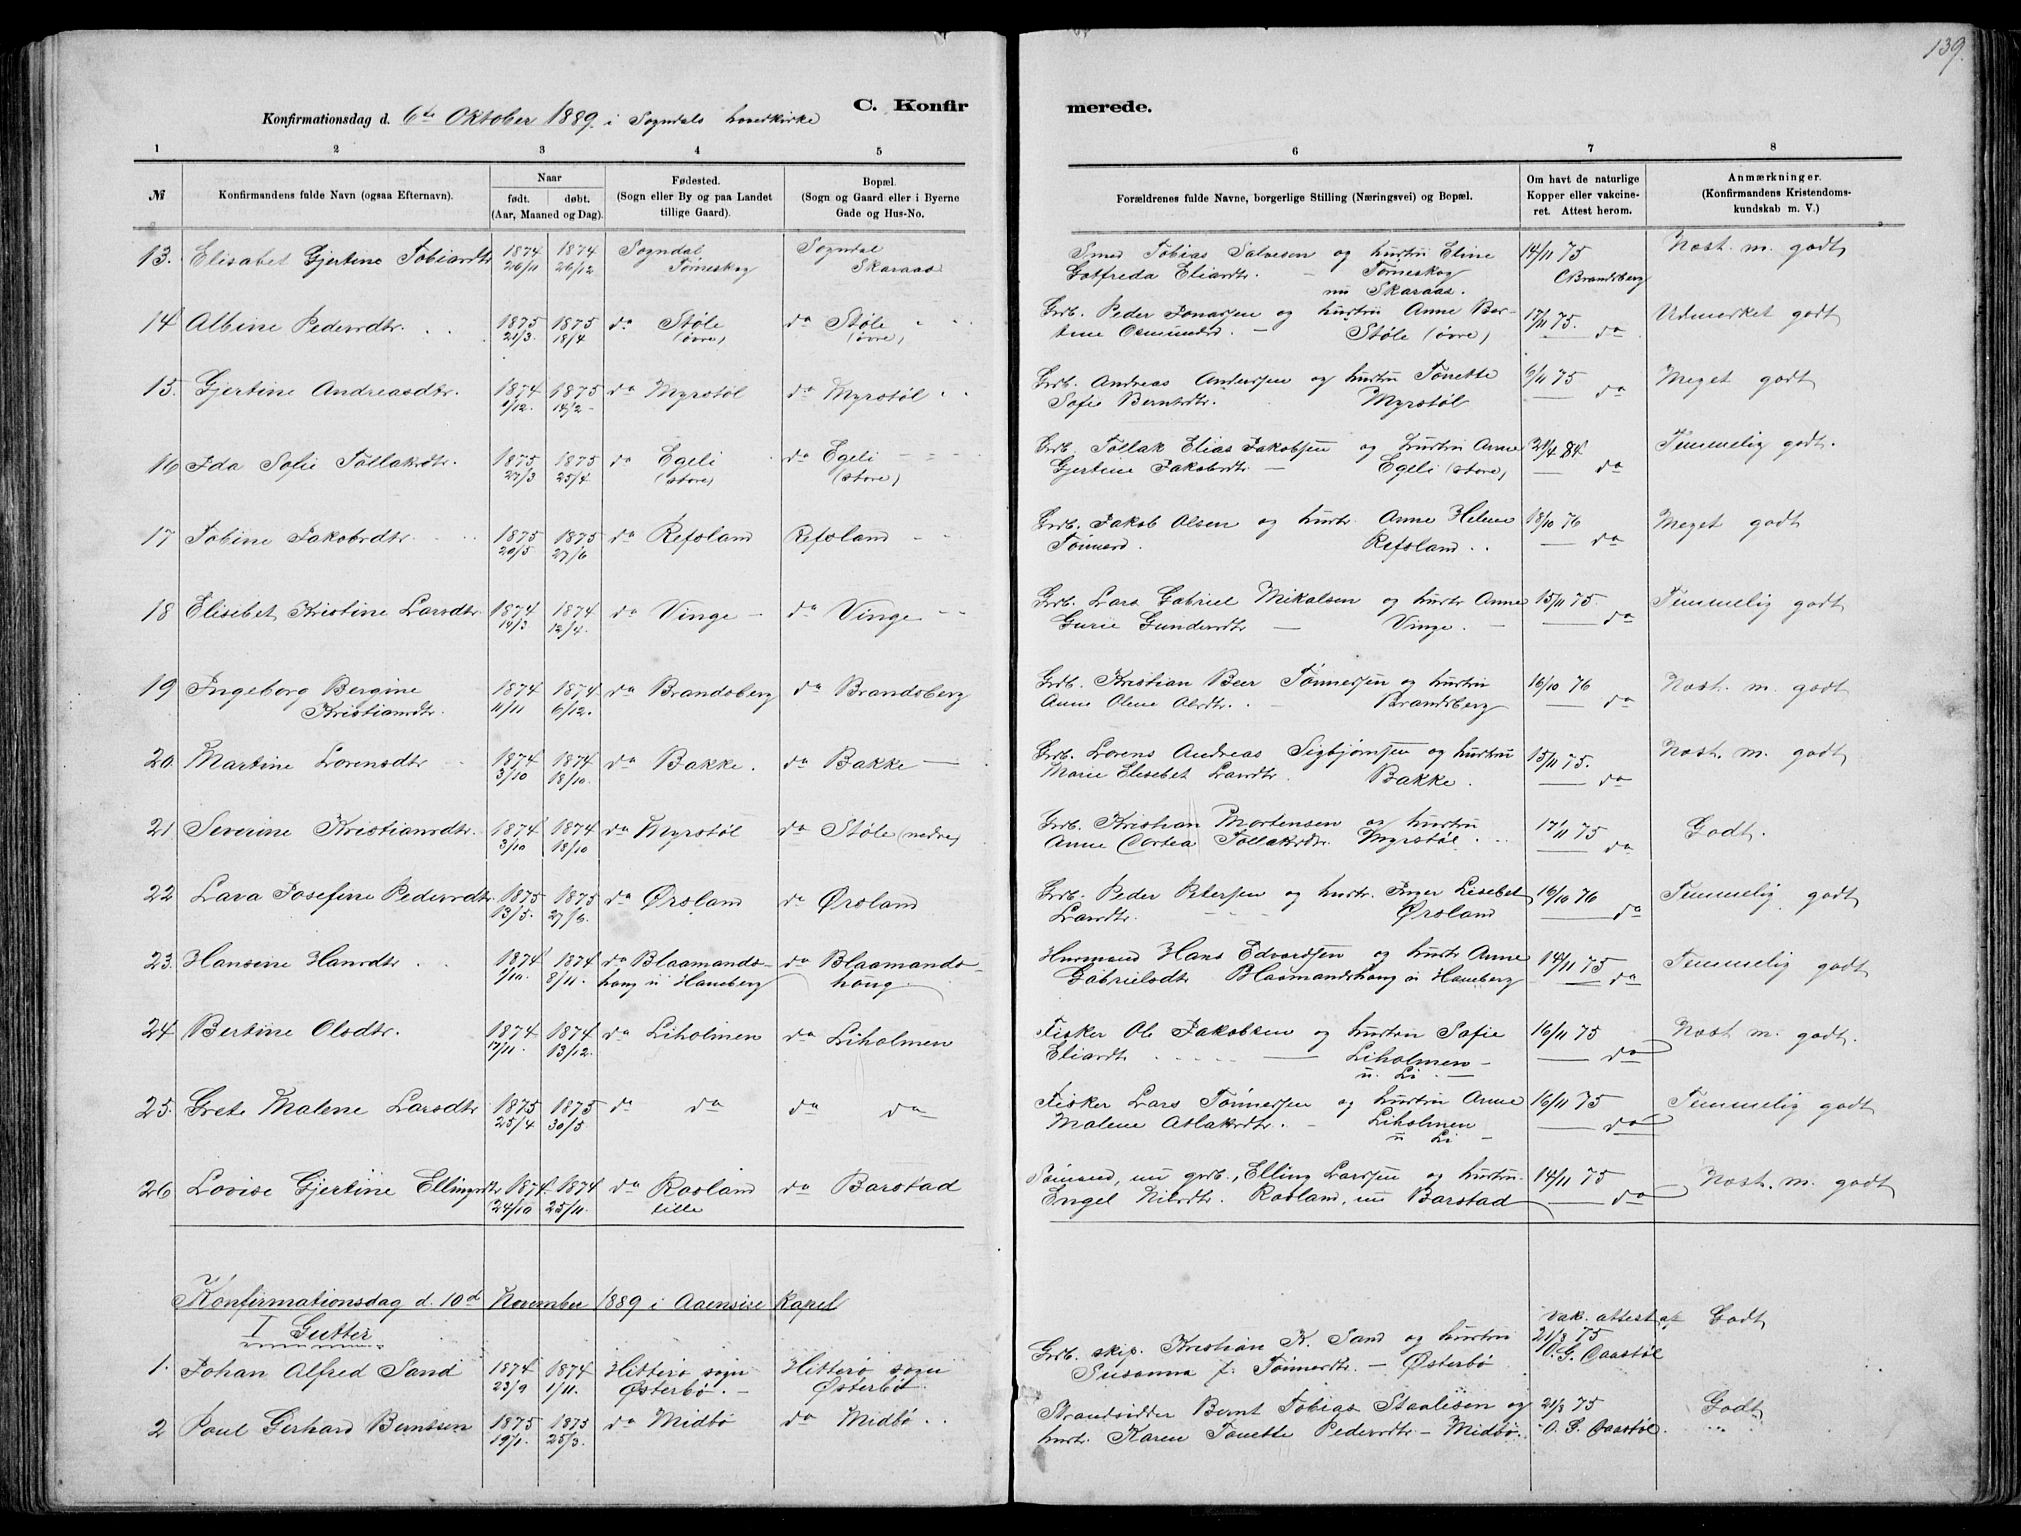 139.
C. Konfirmerede.
Konfirmationsdag d. 6te Oktober 1889. i Sogndals hovedkirke
1 2 3 4 5 6 7 8
№ Konfirmandens fulde Navn (ogsaa Efternavn). Naar født. døbt. (Aar, Maaned og Dag).
Fødested. (Sogn eller By og paa Landet tillige Gaard).
Bopæl. (Sogn og Gaard eller i Byerne Gade og Hus-No.
Forældrenes fulde Navne, borgerlige Stilling (Næringsvei) og Bopæl.
Om havt de naturlige Kopper eller vakcineret. Attest herom.
Anmærkninger. (Konfirmandens Kristendomskundskab m. V.)
13. Elisabet Gjertine Tobiasdtr 1874 1874 Sogndal Sogndal Smed Tobias Salvesen og hustru Eline 14/11 75 Næst. m. godt
26/11 26/12 Tonneskog Skaraas Gotfreda Eliasdtr. – Tonneskog C Brandsberg
nu Skaraas.
14 Albine Pedersdtr. 1875 1875 do Støle do Støle Grb. Peder Jonassen og hustru Anne Ber- 17/11 75. Udmerket godt
21/3. 18/4 (øvre) (øvre) tine Osmundsd. – Støle (øvre) — do
15. Gjertine Andreasdtr. 1874 1875 do Myrstøl do Myrstøl Grb. Andreas Andersen og hustru Tonette 9/11 75 Meget godt
1/12. 14/2 Sofie Berntsdtr. Myrstøl — do
16 Ida Sofie Tollaksdtr. 1875 1875 do Egeli do Egeli Grb. Tollak Elias Jakobsen og hustru Anne 21/4 84. Temmelig godt.
27/3 25/4 (store) (store) Gjertine Jakobsdtr – Egeli (store) — do
17 Tobine Jakobsdtr. 1875 1875 do Refsland Refsland Grb. Jakob Olsen og hustr. Anne Helene 18/10 76 Meget godt
20/5 27/6 Tønnesd. Refsland — do
18 Elisebet Kristine Larsdtr. 1874 1874 do Vinge do Vinge Grb. Lars Gabriel Mikalsen og hustr Anne 15/11 75. Temmelig godt
14/3 12/4. Gurie Gundersdtr – Vinge. – — do
19 Ingeborg Bergine 1874 1874 do Brandsberg do Brandsberg Grb. Kristian Beer Tønnessen og hustru 16/10 76 Næst. m. godt
Kristiansdtr. 11/11 6/12. Anne Olene Olsdtr. Brandsberg — do
20 Martine Lorensdtr 1874 1874 do Bakke. do Bakke Grb. Lorens Andreas Sigbjørnsen og hustru 15/11 75. Næst. m. godt
3/10 18/10. Marie Elisebet Larsdtr. Bakke. — do
21 Severine Kristiansdtr. 1874 1874 do Myrstøl do Støle (nedre) Grb. Kristian Mortensen og hustru 17/11 75 Godt.
3/10 18/10 Anne Tollaksdtr. Myrstøl — do
22 Lava Josefine Pedersdtr 1875 1875 do Ørsland do Ørsland Grb. Peder Petersen og hustr. Inger Lisebet 16/10 76 Temmelig godt
13/5. 27/6. Larsdtr. Ørsland — do
23. Hansine Hansdtr 1874 1874 do Blaamands- do Blaamands- Husmand Hans Edvardsen og hustr Anne 14/11 75 Temmelig godt
1/10. 8/11. haug u Haneberg haug. Gabrielsdtr Blaamandshaug u Haneberg — do
24 Bertine Olsdtr. 1874 1874 do Liholmen do Liholmen Fisker Ole Jakobsen og hustru Sofie 16/11 75 Næst m. godt.
17/11. 13/12. Eliasdtr — Liholmen — do
u. Li. –
25. Grete Malene Larsdtr 1875 1875 do do do do Fisker Lars Tønnessen og hustru Anne 16/11 75 Temmelig godt
25/4 30/5 Malene Aslaksdtr. – Liholmen — do
u Li –
26 Lovise Gjertine Ellingsdtr 1874 1874 do Rosland do Barstad Sømand, nu grb., Elling Larssen og hustru 14/11 75 Næst. m. godt
24/10 25/11. lille Engel Nilsdtr. Rosland, nu Barstad — do
Konfirmationsdag d. 10de November 1889 i Aaensire Kapel
I Gutter
Vak. attest af
1. Johan Alfred Sand 1874 1874 Hitterø sogn Hitterø sogn Grb. skip. Kristian K. Sand og hustru 21/8 75 Godt
23/9 1/11. Østerbø. Østerbø. Susanna J. Tønnesdtr. – Østerbø O. G. Aastøl
2 Poul Gerhard Berntsen 1875 1875 do Midbø do Midbø Strandsidder Bernt Tobias Staalesen og 21/8 75 Godt
19/1. 25/3. hustr. Karen Tonette Pedersdtr – Midbø. O. G. Aastøl.